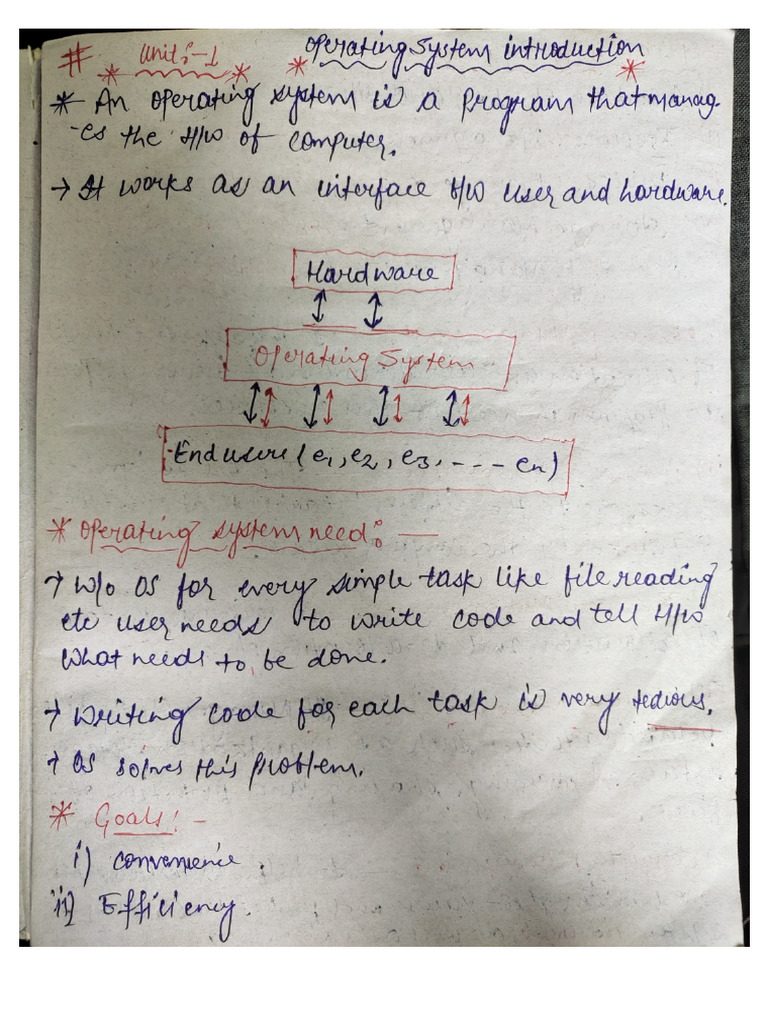 # Unit:-1 Operating System introduction
* An operating system is a program that manag-
-es the H/w of computer.
→ It works as an interface b/w user and hardware.
Hardware
Operating System
End users (e1, e2, e3, - - - en)
* Operating system need:—
→ w/o OS for every simple task like file reading
etc user needs to write code and tell H/w
what needs to be done.
→ Writing code for each task is very tedious.
→ OS solves this problem.
* Goals:-
i) Convenience.
ii) Efficiency.